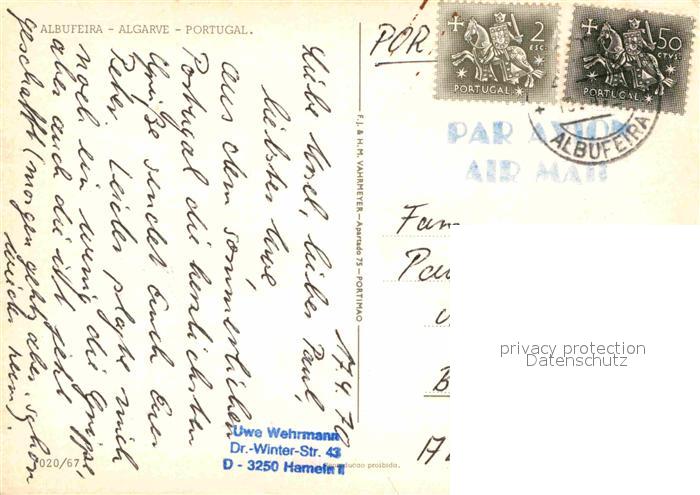 ALBUFEIRA - ALGARVE - PORTUGAL.
17.4.70
Liebe Rosel, lieber Paul,
liebster Uwe
Aus dem sommerlichen
Portugal die herzlichsten
Grüße sendet Euch Euer
Peter. Leider plagte mich
noch ein wenig die Grippe,
aber auch die ist jetzt
geschafft (morgen geht's aber schon
wieder heim).
020/67
Uwe Wehrmann
Dr.-Winter-Str. 43
D - 3250 Hameln II
proibida.
F.J. & H.M. VAHRMEYER - Apartado 75 - PORTIMAO
POR
2
ESC.
PORTUGAL
50
CTVS.
PORTUGAL
ALBUFEIRA
PAR AVION
AIR MAIL
Fam
Pau
B
privacy protection
Datenschutz